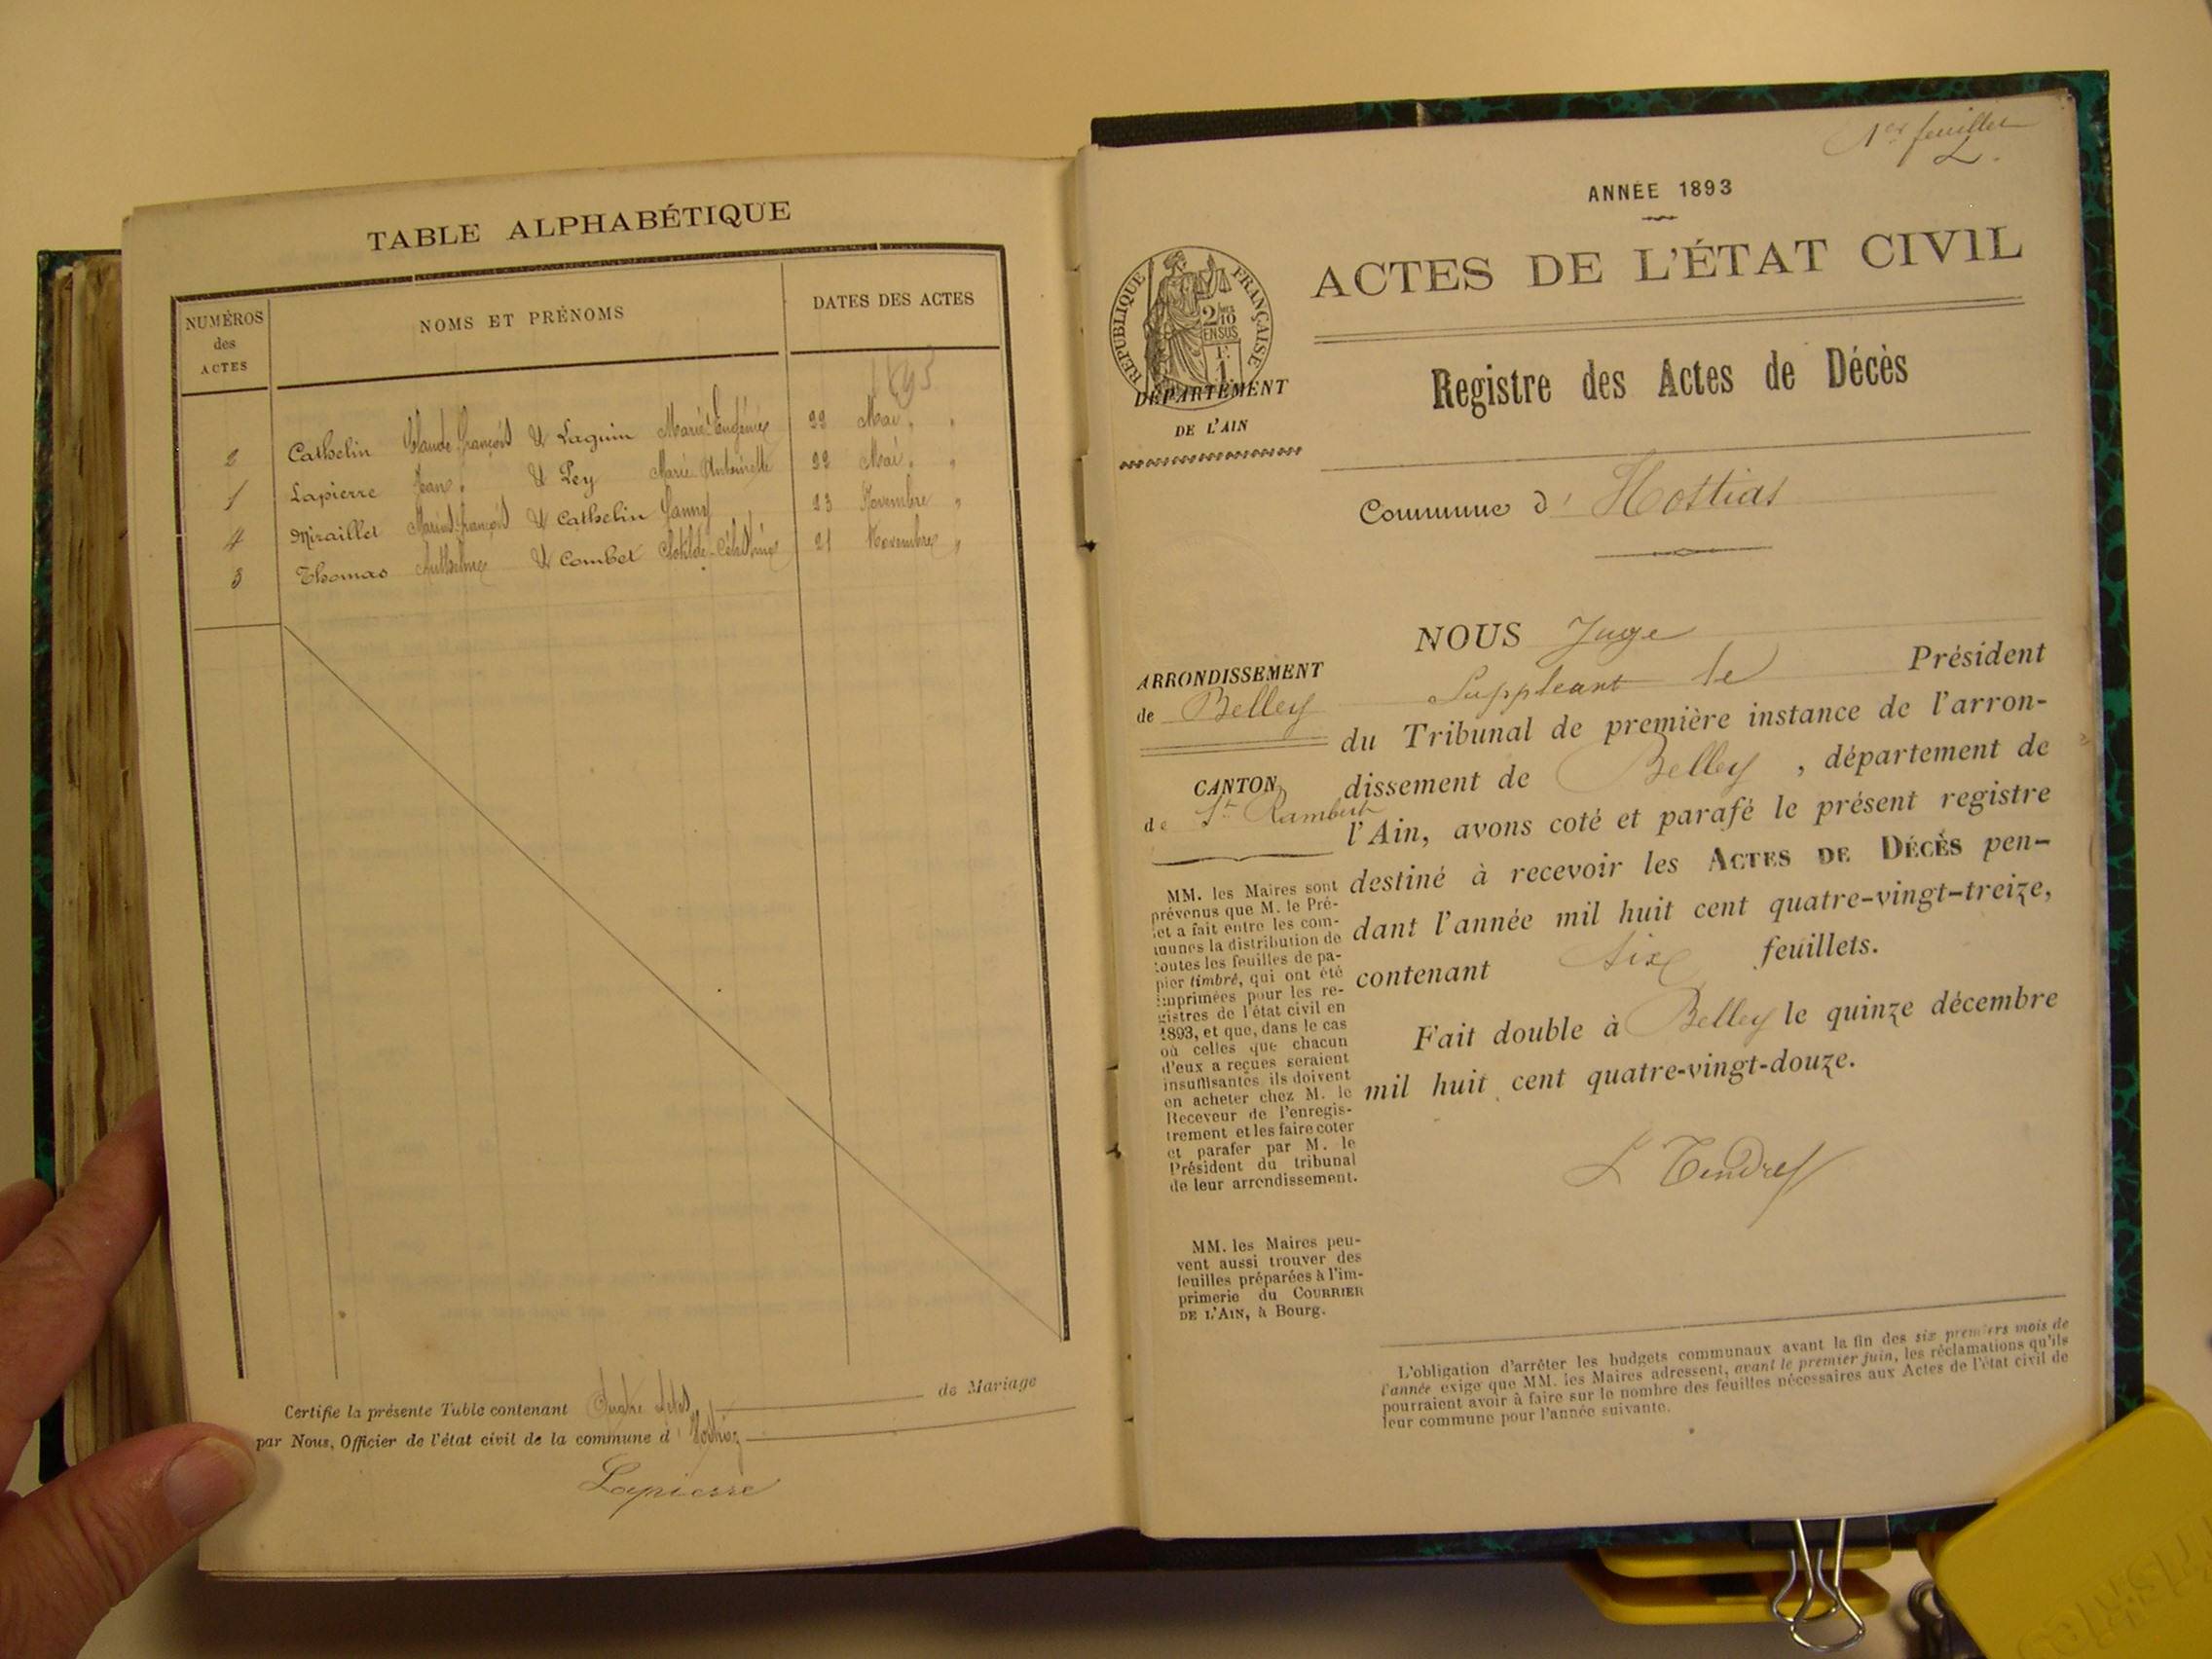 TABLE ALPHABÉTIQUE
NUMÉROS des ACTES
NOMS ET PRÉNOMS
DATES DES ACTES
1893
2 Cathelin Claude François & Laguin Marie Eugénie 22 Mai "
1 Lapierre Jean & Pey Marie Antoinette 22 Mai "
4 Miraillet Marius François & Cathelin Fanny 23 Novembre "
3 Thomas Anthelme & Combet Clotilde Célestine 21 Novembre "
Certifie la présente Table contenant Quatre actes de Mariage
par Nous, Officier de l'état civil de la commune d' Hostiaz
Lapierre
1er feuillet
ANNÉE 1893
ACTES DE L'ÉTAT CIVIL
RÉPUBLIQUE FRANÇAISE
2/10
EN SUS
DÉPARTEMENT
DE L'AIN
Registre des Actes de Décès
Commune d' Hostias
ARRONDISSEMENT
de Belley
CANTON
de St Rambert
MM. les Maires sont
prévenus que M. le Pré-
et a fait entre les com-
munes la distribution de
toutes les feuilles de pa-
pier timbré, qui ont été
imprimées pour les re-
gistres de l'état civil en
1893, et que, dans le cas
où celles que chacun
d'eux a reçues seraient
insuffisantes ils doivent
en acheter chez M. le
Receveur de l'enregis-
trement et les faire coter
et parafer par M. le
Président du tribunal
de leur arrondissement.
MM. les Maires peu-
vent aussi trouver des
feuilles préparées à l'im-
primerie du COURRIER
DE L'AIN, à Bourg.
NOUS Juge
Suppleant le Président
du Tribunal de première instance de l'arron-
dissement de Belley, département de
l'Ain, avons coté et parafé le présent registre
destiné à recevoir les ACTES DE DÉCÈS pen-
dant l'année mil huit cent quatre-vingt-treize,
contenant six feuillets.
Fait double à Belley le quinze décembre
mil huit cent quatre-vingt-douze.
L'obligation d'arrêter les budgets communaux avant la fin des six premiers mois de
l'année exige que MM. les Maires adressent, avant le premier juin, les réclamations qu'ils
pourraient avoir à faire sur le nombre des feuilles nécessaires aux Actes de l'état civil de
leur commune pour l'année suivante.